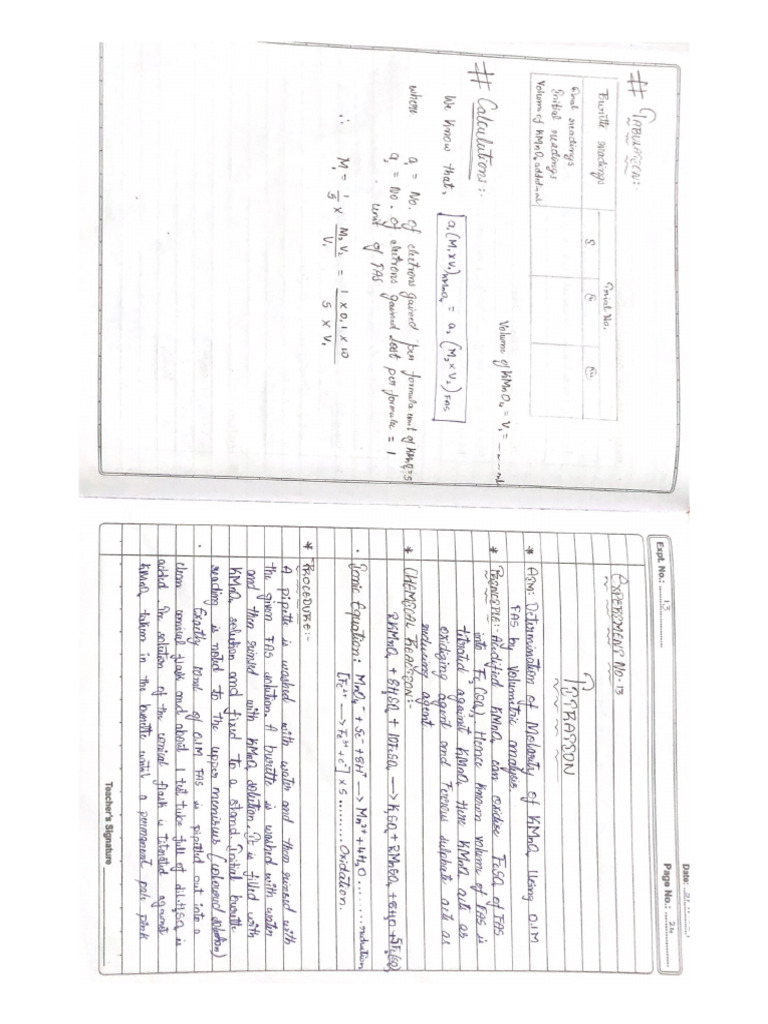 # TABULATION:-
Burette readings
Trial No.
I
II
III
Final readings
Initial readings
Volume of KMnO4 added in ml
Volume of KMnO4 = V1 = ---- ml
# Calculations:-
We know that, a1(M1×V1)KMnO4 = a2(M2×V2)FAS
where a1 = No. of electrons gained per formula unit of KMnO4 = 5
a2 = No. of electrons gained lost per formula = 1
unit of FAS
∴ M1 = 1/5 × M2V2/V1 = 1 × 0.1 × 10 / 5 × V1
Date:
Expt. No.: 13
Page No.: 24
EXPERIMENT NO. 13
TITRATION
* AIM: Determination of Molarity of KMnO4 using 0.1M
FAS by Volumetric analysis.
* PRINCIPLE:- Acidified KMnO4 can oxidise FeSO4 of FAS
into Fe2(SO4)3. Hence known volume of FAS is
titrated against KMnO4. Here KMnO4 acts as
oxidizing agent and Ferrous sulphate acts as
reducing agent
* CHEMICAL REACTION:-
2KMnO4 + 8H2SO4 + 10FeSO4 → K2SO4 + 2MnSO4 + 8H2O + 5Fe2(SO4)3
· Ionic Equation: MnO4⁻ + 5e⁻ + 8H⁺ → Mn²⁺ + 4H2O ........ reduction
[Fe²⁺ → Fe³⁺ + e⁻] × 5 ........ Oxidation.
* PROCEDURE:-
A pipette is washed with water and then rinsed with
the given FAS solution. A burette is washed with water
and then rinsed with KMnO4 solution. It is filled with
KMnO4 solution and fixed to a stand. Initial burette
reading is noted to the upper meniscus (coloured solution)
· Exactly 10ml of 0.1M FAS is pipetted out into a
clean conical flask and about 1 test tube full of dil. H2SO4 is
added. The solution of the conical flask is titrated against
KMnO4 taken in the burette until a permanent pale pink
Teacher's Signature